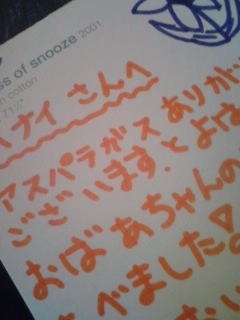 ss of snooze 2001
n cotton
71½"
ナイ さんへ
アスパラガス ありがと
ございます。とよは
おばあちゃんの
べました！